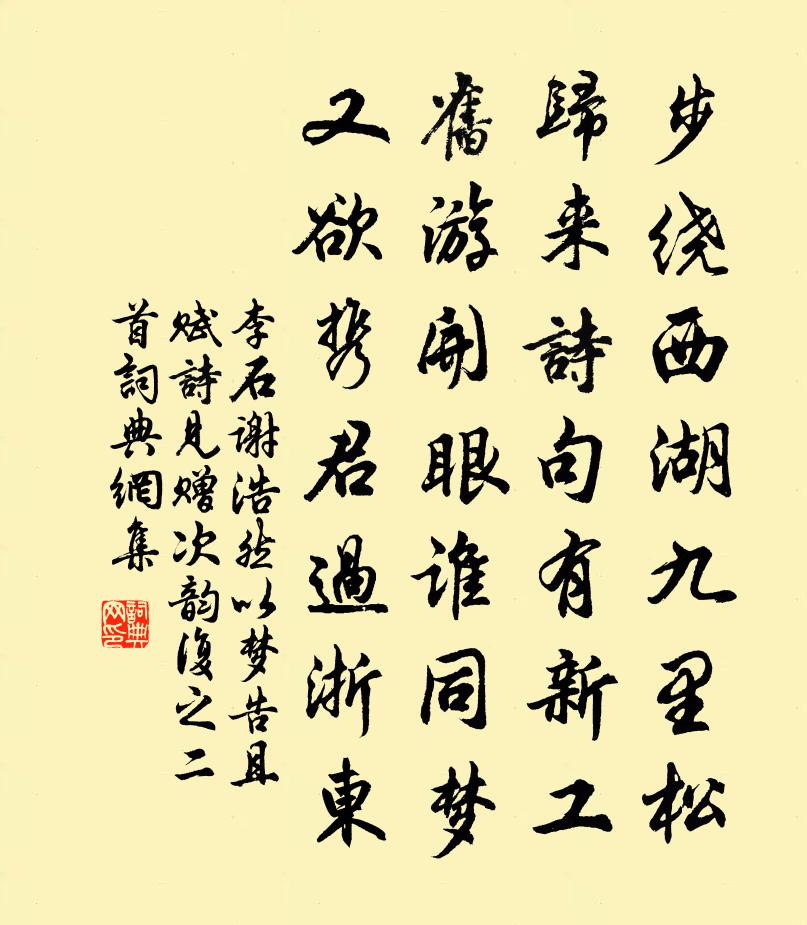 步绕西湖九里松
歸来詩句有新工
舊游開眼誰同梦
又欲携君過浙東
李石谢浩然以梦告且
赋詩見赠次韵復之二
首詞典網集
詞典网印